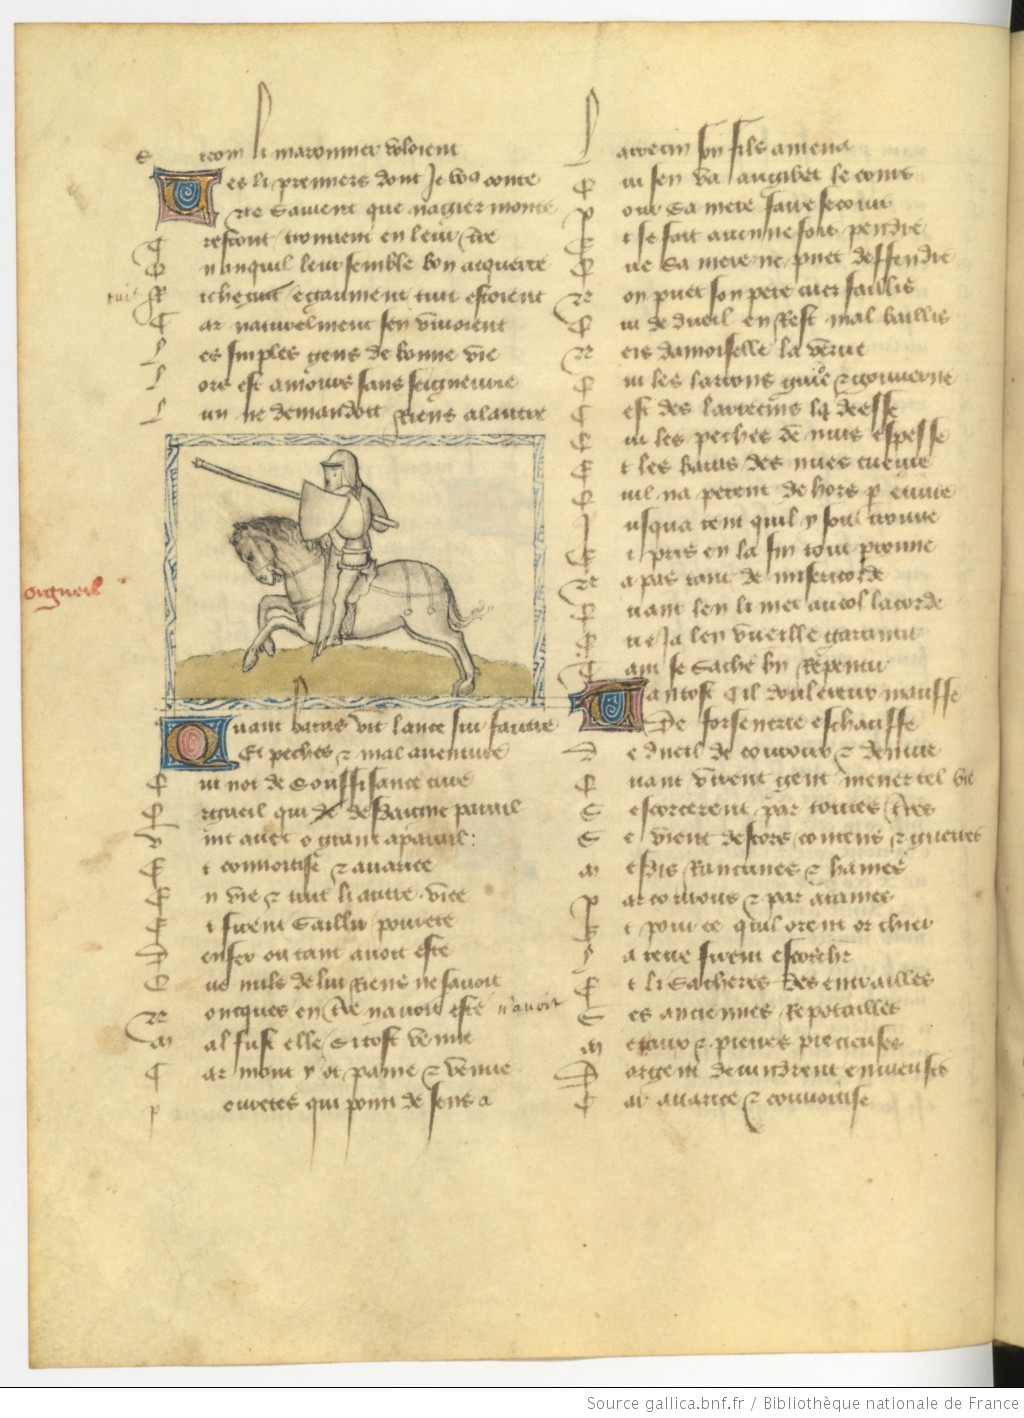 S crom li maronnier vuloient
Des li premiers dont Je vo9 conte
Ne Savient que nagier monte
Trestout trouvient en leur tre
Q nanquil leur semble bon acquerre
tuit
Riche tuit egaument tuit estoient
Car naturelment sen vivoient
Les simples gens de bonne vie
Lors est amours sans seigneurie
Lun ne demandoit Riens alautre
orgueil
Quant baras vit lance sur fautre
Et peches & mal aventure
Qui not de Souffisance cure
Orgueil qui de desdaigne pareil
vint avec o grant apareil
Et convoitise & avarice
Envie & tuit li autre vice
Et firent Saillir povrete
Denfer ou tant avoit este
Que nuls de lui Riens ne savoit
Noncques en tre navoit este n'avoit
Mal fust elle Si tost venue
Car mont y ot pame & venue
povretes qui point de sens a
Larrecin son fils amena
Qui sen va au gibet le cours
pour Sa mere faire secours
Et se fait aucunne fois pendre
Que Sa mere ne puet deffendre
Non puet son pere cuer faillis
Qui de dueil en Rest mal baillis
Neis damoiselle laverne
Qui les larrons guie & gouverne
Cest des larrecins la deesse
Qui les peches de nuis espesse
Et les baras des nues cueuvre
Quil na perent de hors p euvre
Jusqua tent quil y sont trouve
Et pris en la fin tout prouve
Na pas tant de misericorde
Quant len li met au col la corde
Que Ja len vueille garantir
Tant se Sache bn Repentir
Tantost Cil douloureux mauffe
De forsenerie eschauffe
De dueil de courroux & denvie
Quant virent gent mener tel vie
Sescorcerent par toutes tres
Se vient descors contens & guerres
Mesdis Rancunes & haines
par courrous & par ataines
Et pour ce quil orent or chier
La terre firent escorchier
Et li Sacheres des entrailles
Ses anciennes Repotailles
Metaux & pierres precieuses
Dorgent devindrent envieuses
Car avarice & convoitise
Source gallica.bnf.fr / Bibliothèque nationale de France